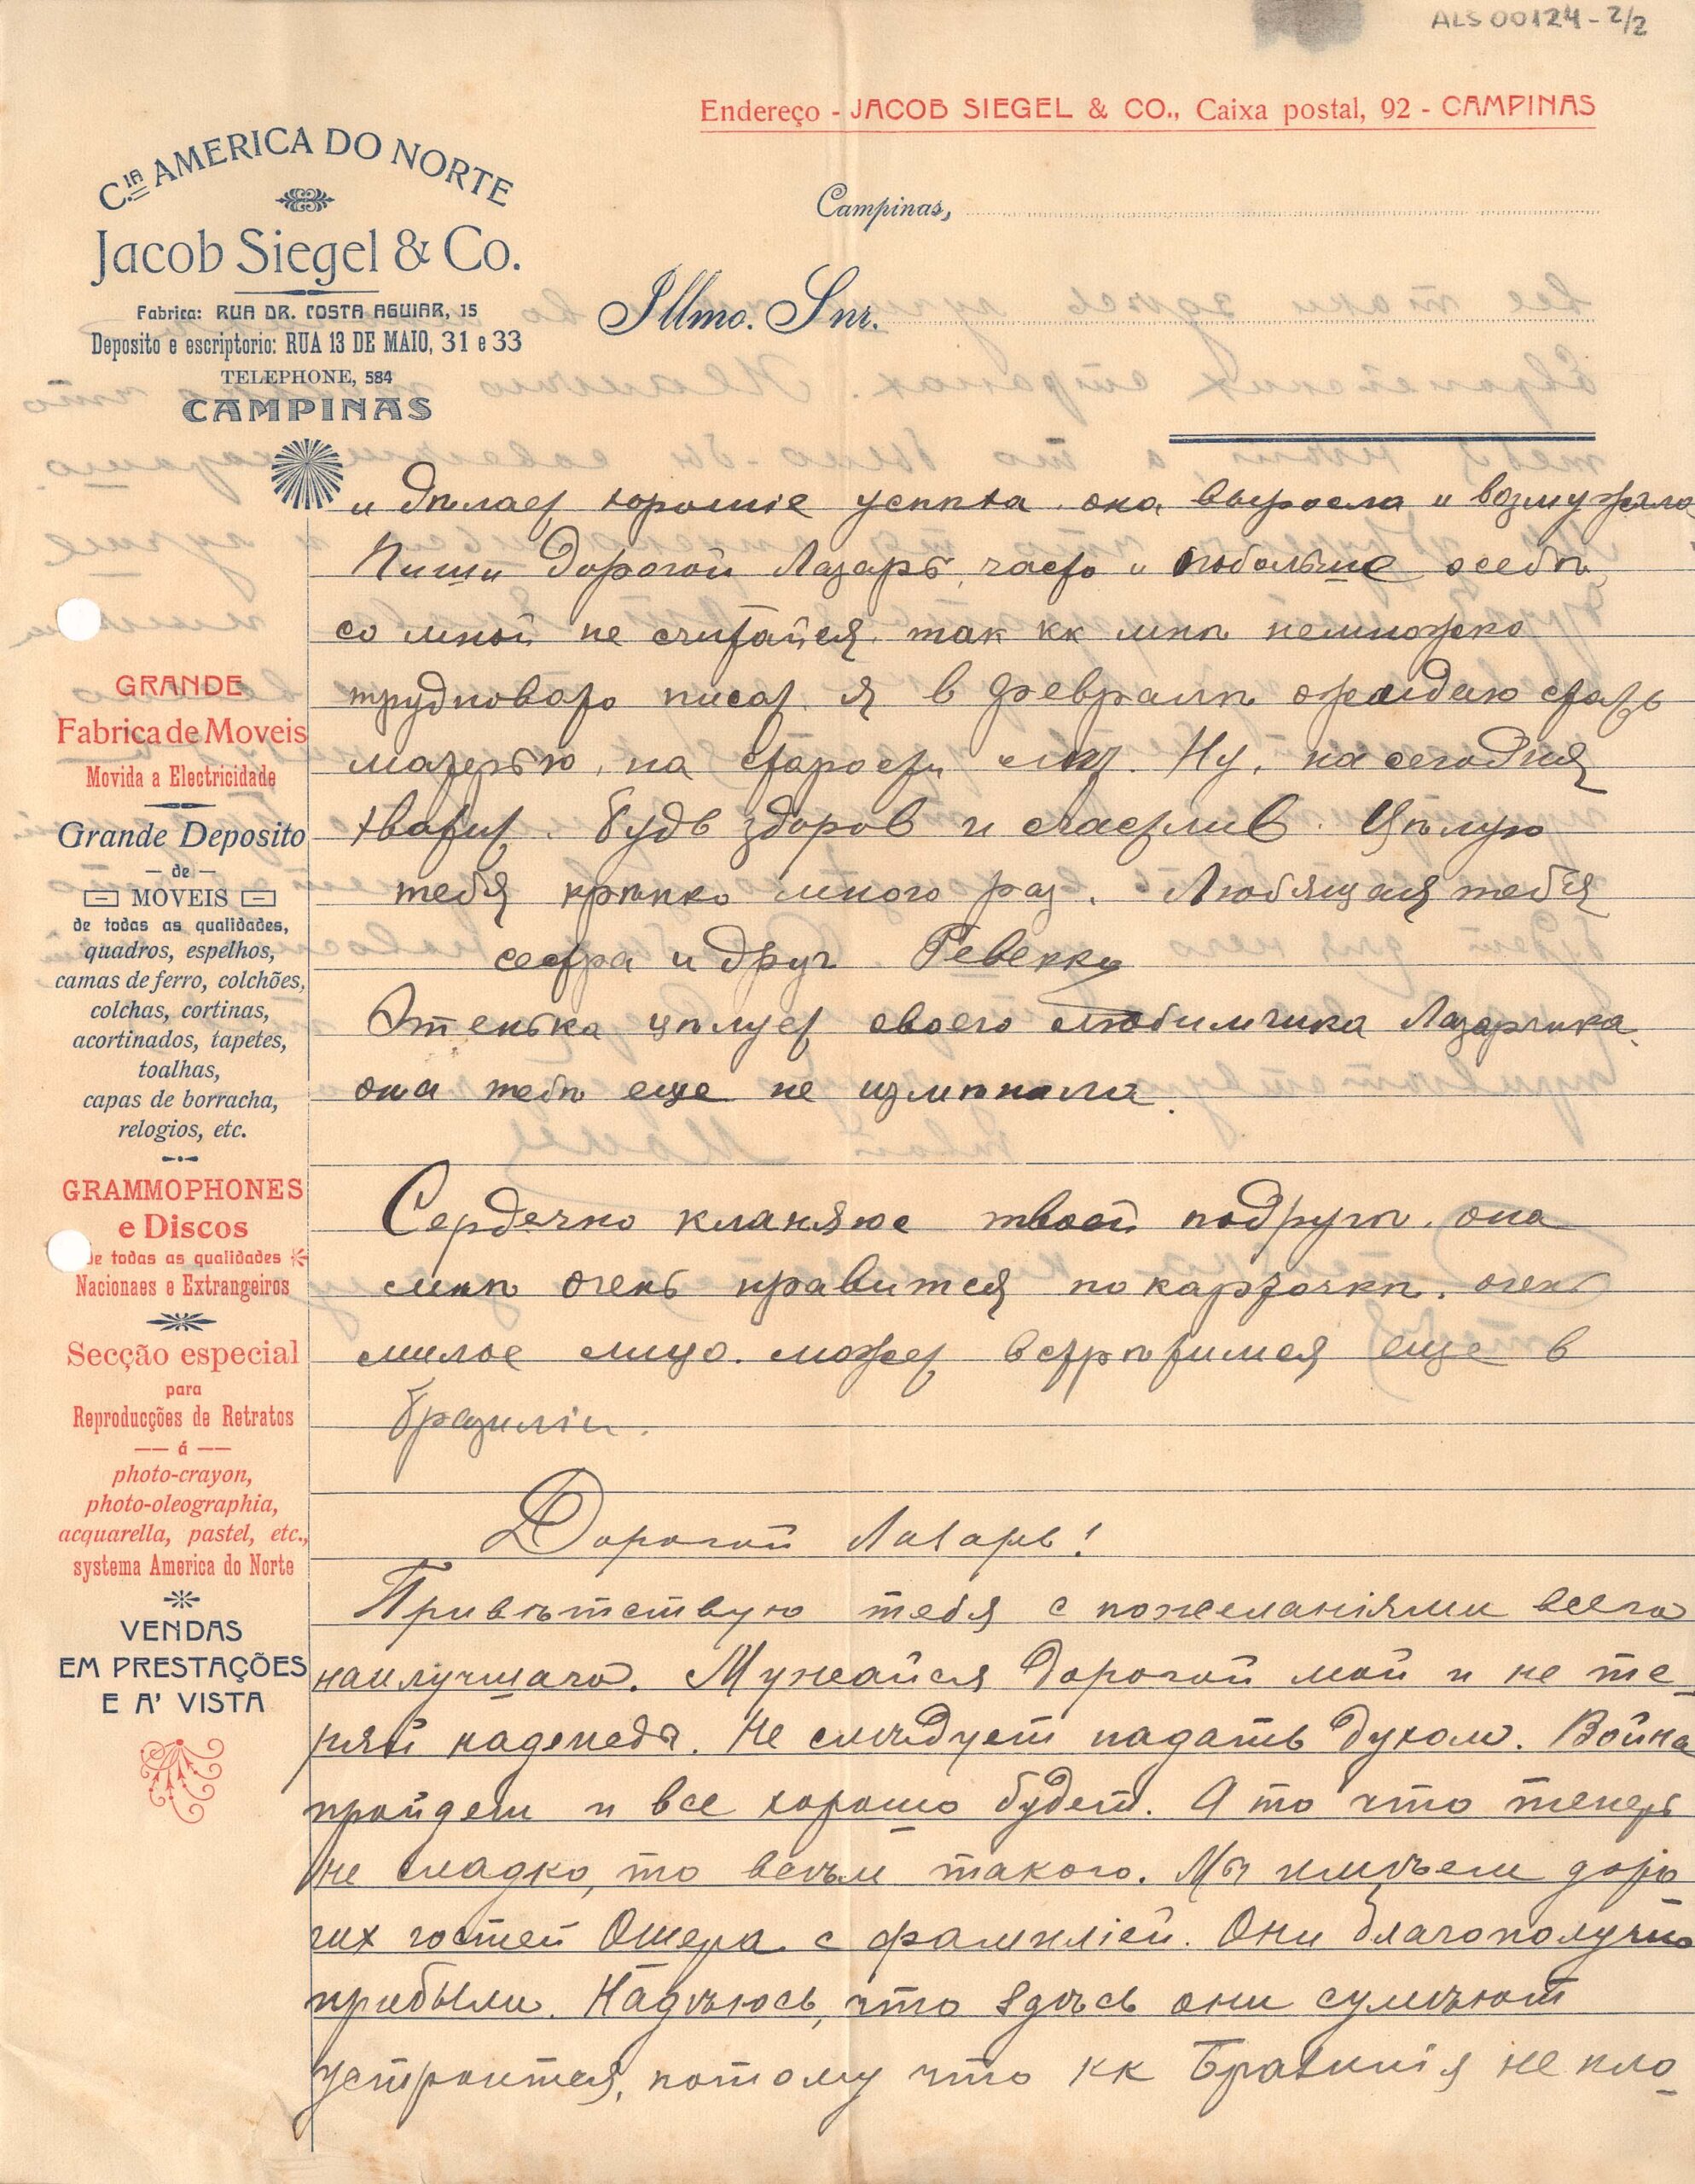 ALS 00124 - 2/2
Endereço - JACOB SIEGEL & CO., Caixa postal, 92 - CAMPINAS
C.IA AMERICA DO NORTE
Jacob Siegel & Co.
Fabrica: RUA DR. COSTA AGUIAR, 15
Deposito e escriptorio: RUA 13 DE MAIO, 31 e 33
TELEPHONE, 584
CAMPINAS
Campinas,
Illmo. Snr.
GRANDE
Fabrica de Moveis
Movida a Electricidade
Grande Deposito
— de —
MOVEIS
de todas as qualidades,
quadros, espelhos,
camas de ferro, colchões,
colchas, cortinas,
acortinados, tapetes,
toalhas,
capas de borracha,
relogios, etc.
GRAMMOPHONES
e Discos
de todas as qualidades
Nacionaes e Extrangeiros
Secção especial
para
Reproducções de Retratos
— á —
photo-crayon,
photo-oleographia,
acquarella, pastel, etc.,
systema America do Norte
VENDAS
EM PRESTAÇÕES
E A' VISTA
и дѣлает хорошіе успѣха. она выросла и возмужала
Пиши дорогой Лазарь, часто и побольше о себѣ
со мной не считайся. так кк мнѣ немножко
трудновато писат. я в февралѣ ожидаю стать
матерью, на старости лѣт. Ну, на сегодня
хватит. будь здоров и счастлив. Цѣлую
тебя крѣпко много раз. Любящая тебя
сестра и друг Ревекка
Этенька цѣлует своего любимчика Лазарчика.
она тебѣ еще не измѣнила.
Сердечно кланяюс твоей подругѣ. она
мнѣ очень нравится по карточкѣ. очень
милое лицо. может встрѣтимся еще в
бразиліи.
Дорогой Лазарь!
Привѣтствую тебя с пожеланіями всего
наилучшаго. Мужайся дорогой мой и не те-
ряй надежды. Не слѣдует падать духом. Война
пройдет и все хорошо будет. А то что теперь
не сладко, то всѣм такого. Мы имѣем доро
гих гостей Ошера с фамиліей. Они благополучно
прибыли. Надѣюсь, что здѣсь они сумѣют
устроится, потому что кк Бразилія не пло-